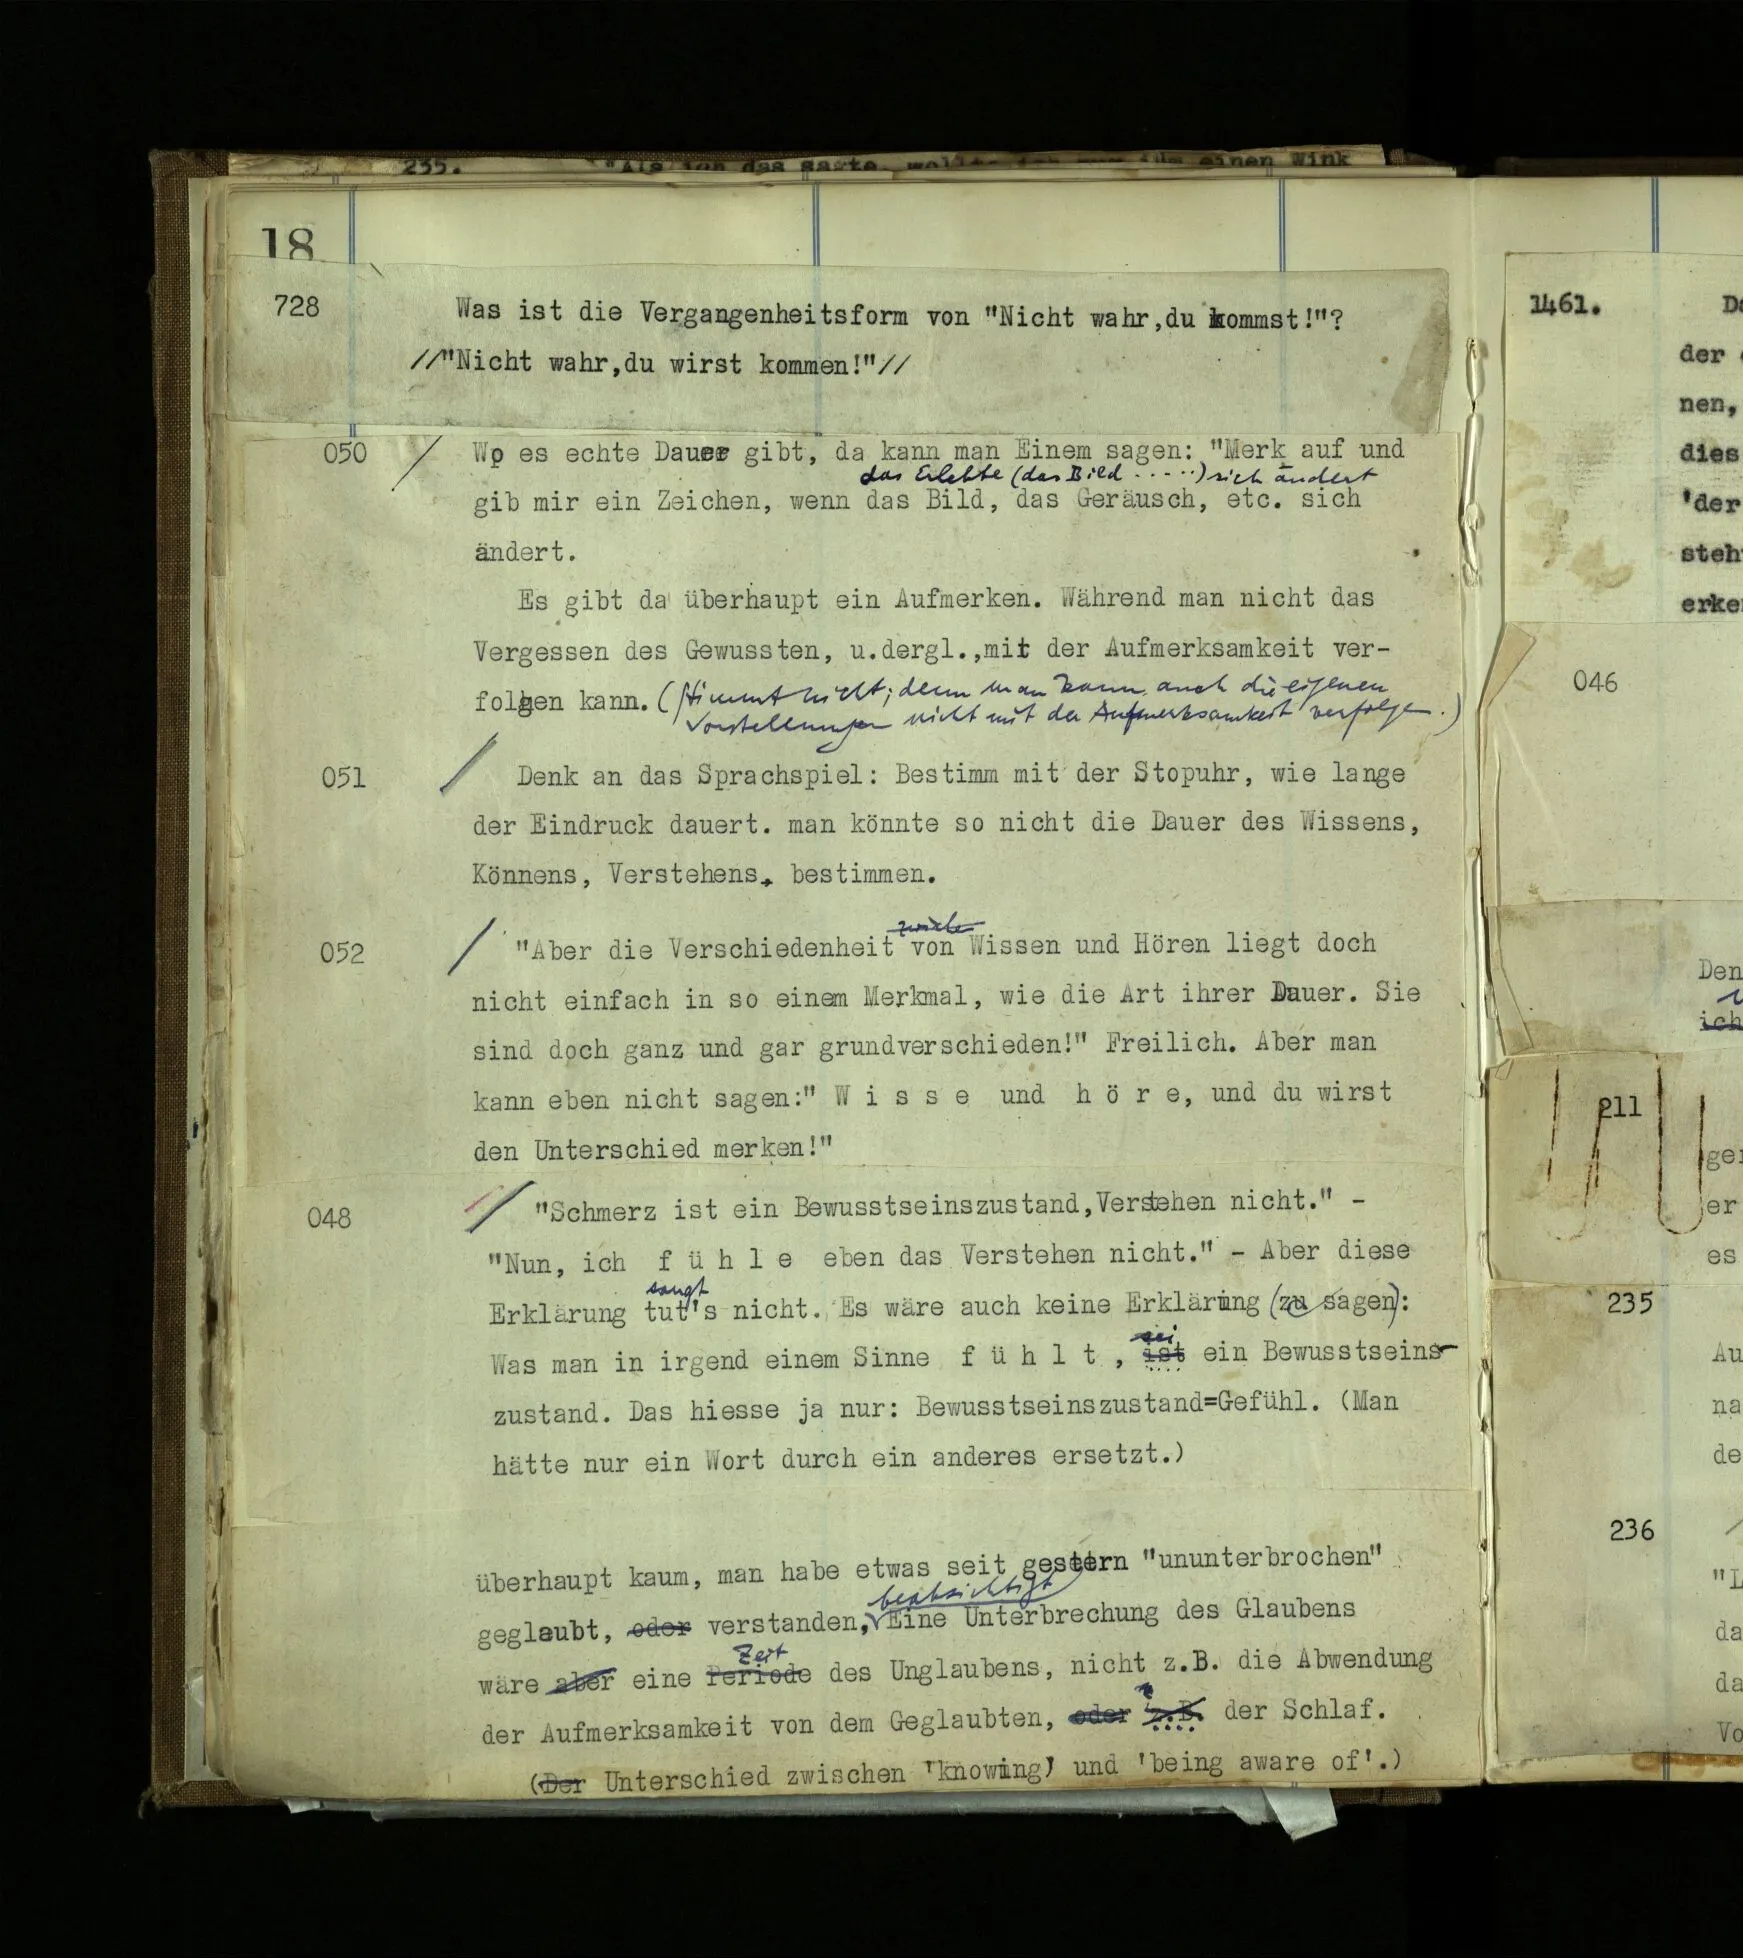 235. "Als ich das sagte, wollte ich nur ihm einen Wink
18
728 Was ist die Vergangenheitsform von "Nicht wahr,du kommst!"?
//"Nicht wahr,du wirst kommen!"//
050 / Wo es echte Dauer gibt, da kann man Einem sagen: "Merk auf und
das Erlebte (das Bild ·····) sich ändert
gib mir ein Zeichen, wenn das Bild, das Geräusch, etc. sich
ändert.
Es gibt da überhaupt ein Aufmerken. Während man nicht das
Vergessen des Gewussten, u.dergl.,mit der Aufmerksamkeit ver-
folgen kann. (Stimmt nicht; denn man kann auch die eigenen
Vorstellungen nicht mit der Aufmerksamkeit verfolgen.)
051 / Denk an das Sprachspiel: Bestimm mit der Stopuhr, wie lange
der Eindruck dauert. man könnte so nicht die Dauer des Wissens,
Könnens, Verstehens, bestimmen.
052 / "Aber die Verschiedenheit von Wissen und Hören liegt doch
nicht einfach in so einem Merkmal, wie die Art ihrer Dauer. Sie
sind doch ganz und gar grundverschieden!" Freilich. Aber man
kann eben nicht sagen:" W i s s e und h ö r e, und du wirst
den Unterschied merken!"
048 / "Schmerz ist ein Bewusstseinszustand,Verstehen nicht." -
"Nun, ich f ü h l e eben das Verstehen nicht." - Aber diese
saugt
Erklärung tut's nicht. Es wäre auch keine Erklärung (zu sagen):
sei
Was man in irgend einem Sinne f ü h l t , ist ein Bewusstseins-
zustand. Das hiesse ja nur: Bewusstseinszustand=Gefühl. (Man
hätte nur ein Wort durch ein anderes ersetzt.)
überhaupt kaum, man habe etwas seit gestern "ununterbrochen"
beabsichtigt
geglaubt, oder verstanden, Eine Unterbrechung des Glaubens
Zeit
wäre aber eine Periode des Unglaubens, nicht z.B. die Abwendung
der Aufmerksamkeit von dem Geglaubten, oder z.B. der Schlaf.
(Der Unterschied zwischen 'knowing' und 'being aware of'.)
1461. Da
der
nen,
dies
'der
steh
erke
046
Den
ich
211
ger
er
es
235
Au
na
de
236
"L
da
da
Vo